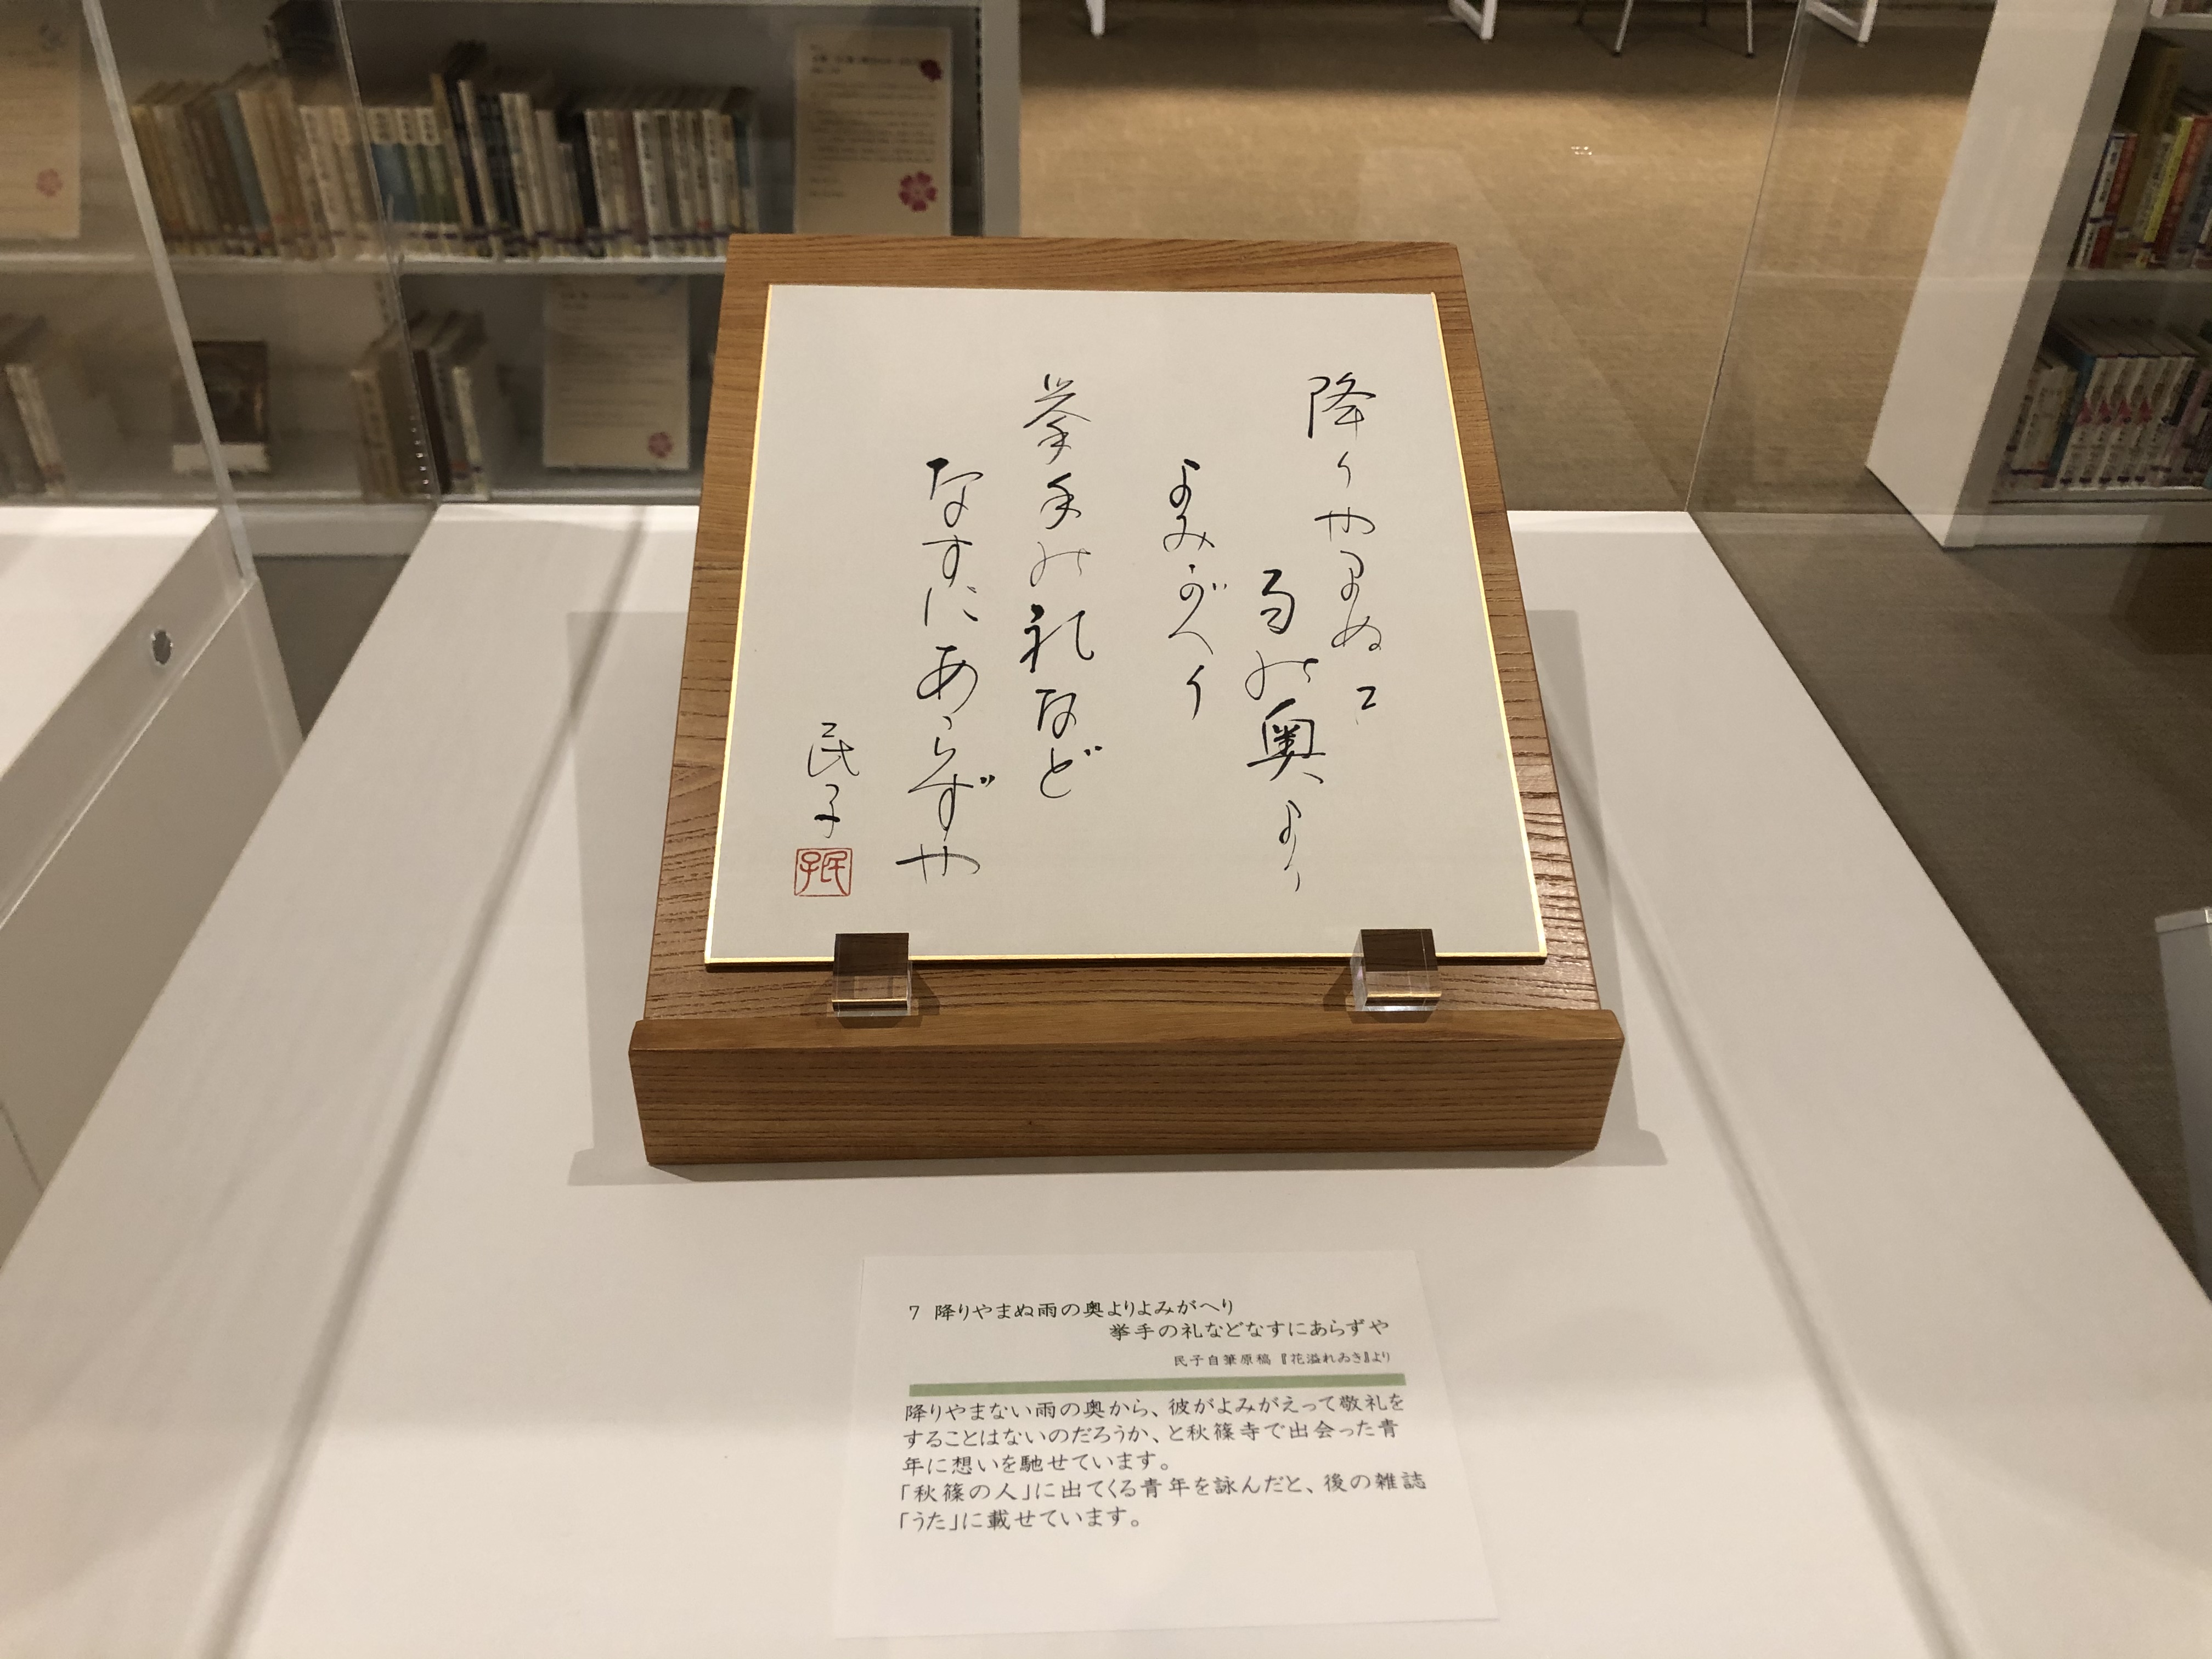 降りやまぬ
雨の奥より
よみがへり
挙手の礼など
なすにあらずや
民子
民子
7 降りやまぬ雨の奥よりよみがへり
挙手の礼などなすにあらずや
民子自筆原稿『花溢れゐき』より
降りやまない雨の奥から、彼がよみがえって敬礼を
することはないのだろうか、と秋篠寺で出会った青
年に想いを馳せています。
「秋篠の人」に出てくる青年を詠んだと、後の雑誌
「うた」に載せています。